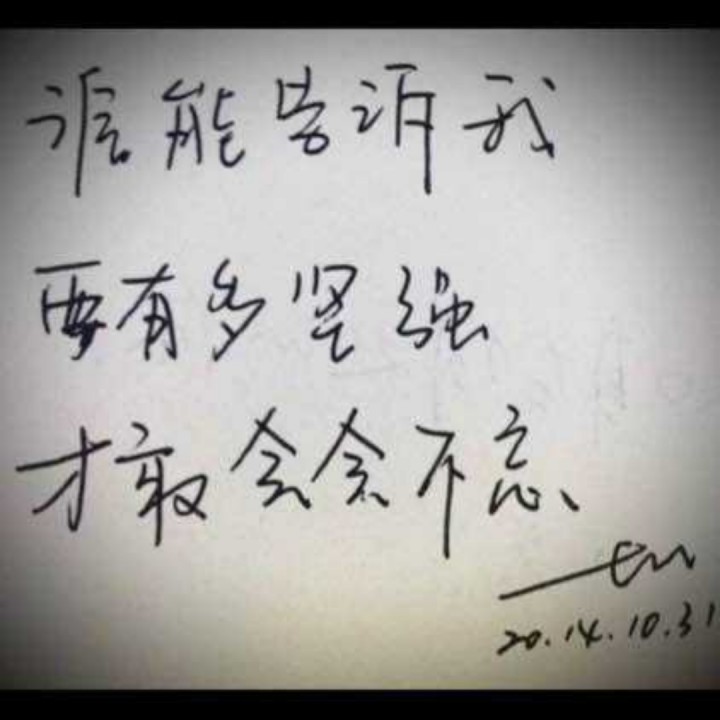 谁能告诉我
要有多坚强
才敢念念不忘
20.14.10.31